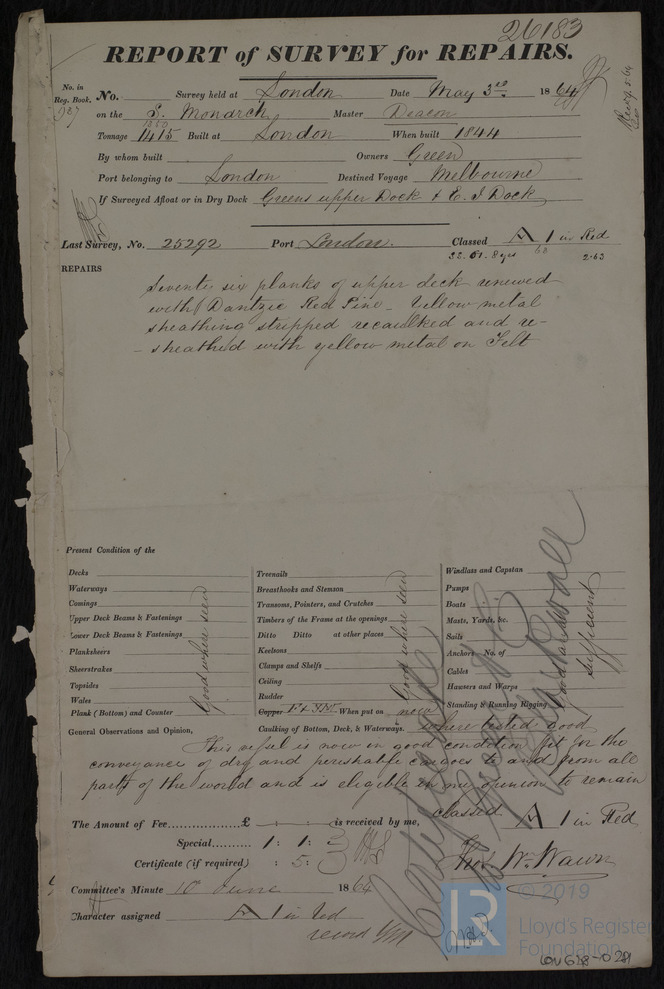 26183
REPORT of SURVEY for REPAIRS.
No. in Reg. Book.
No. Survey held at London Date May 3rd 1864
on the S. Monarch Master Deacon
Tonnage 1415 Built at London When built 1844
By whom built Owners Green
Port belonging to London Destined Voyage Melbourne
If Surveyed Afloat or in Dry Dock Greens upper Dock & E. I Dock
Last Survey, No. 25292 Port London. Classed A 1 in Red
REPAIRS
Seventy six planks of upper deck renewed
with Dantzic Red Pine - Yellow metal
sheathing stripped recaulked and re-
- sheathed with yellow metal on Felt
Present Condition of the
Decks
Waterways
Comings
Upper Deck Beams & Fastenings
Lower Deck Beams & Fastenings
Planksheers
Sheerstrakes
Topsides
Wales
Plank (Bottom) and Counter
Good where seen
Treenails
Breasthooks and Stemson
Transoms, Pointers, and Crutches
Timbers of the Frame at the openings
Ditto Ditto at other places
Keelsons
Clamps and Shelfs
Ceiling
Rudder
Copper F & YM When put on new
Caulking of Bottom, Deck, & Waterways. where tested good
Good where seen
Windlass and Capstan
Pumps
Boats
Masts, Yards, &c.
Sails
Anchors No. of
Cables
Hawsers and Warps
Standing & Running Rigging
Good and sufficient
General Observations and Opinion,
This vessel is now in good condition fit for the
conveyance of dry and perishable cargoes to and from all
parts of the world and is eligible in my opinion to remain
classed A 1 in Red
The Amount of Fee £ is received by me,
Special 1 : 1 :
Certificate (if required) : 5 :
Thos. Wm. Wawn
Committee's Minute 10th June 1864
Character assigned A 1 in red
© 2019
LR
Lloyd's Register
Foundation